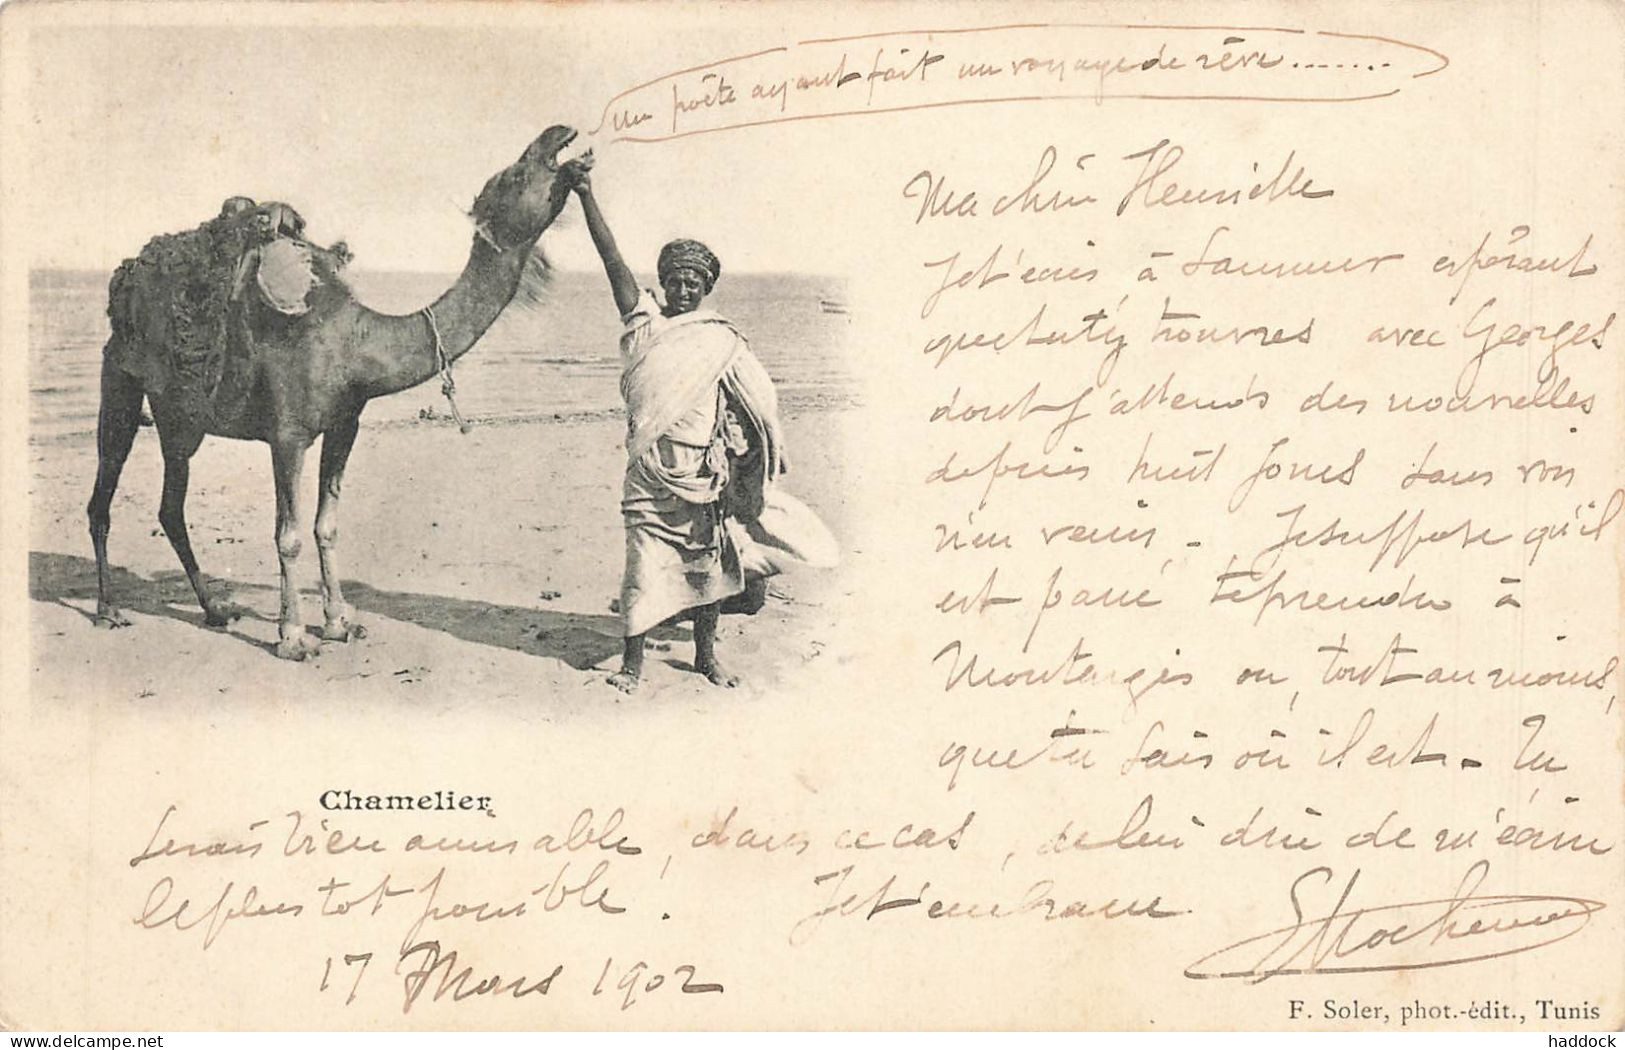 Un poète ayant fait un voyage de rêve.......
Ma chère Henrielle
Je t'écris à Saumur espérant
que tu t'y trouves avec Georges
dont j'attends des nouvelles
depuis huit jours sans voir
rien venir - Je suppose qu'il
est passé te prendre à
Montargis ou, tout au moins,
que tu sais où il est - Tu
Chamelier
serais bien aimable, dans ce cas, de lui dire de m'écrire
le plus tot possible! Je t'embrasse
17 Mars 1902
F. Soler, phot.-édit., Tunis
haddock